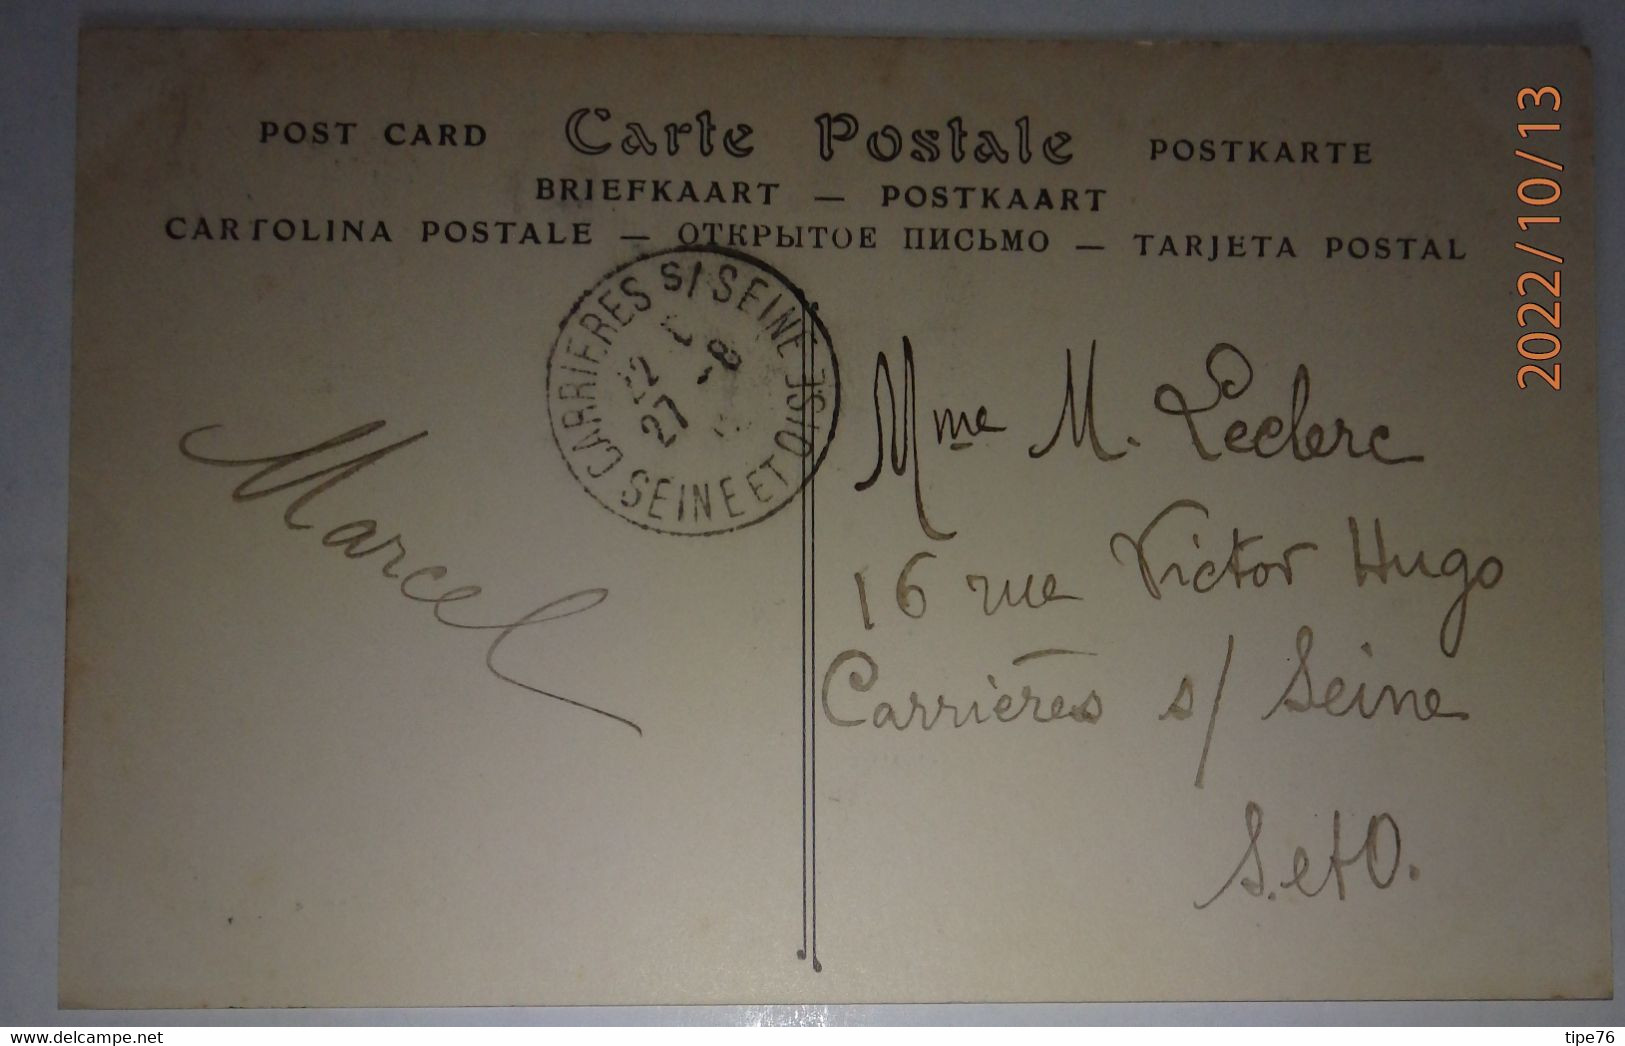 POST CARD Carte Postale POSTKARTE
BRIEFKAART — POSTKAART
CARTOLINA POSTALE — ОТКРЫТОЕ ПИСЬМО — TARJETA POSTAL
CARRIERES S/ SEINE
SEINE ET OISE
27
-8
Marcel
Mme M. Leclerc
16 rue Victor Hugo
Carrières s/ Seine
S. et O.
2022/10/13
delcampe.net
tipe76